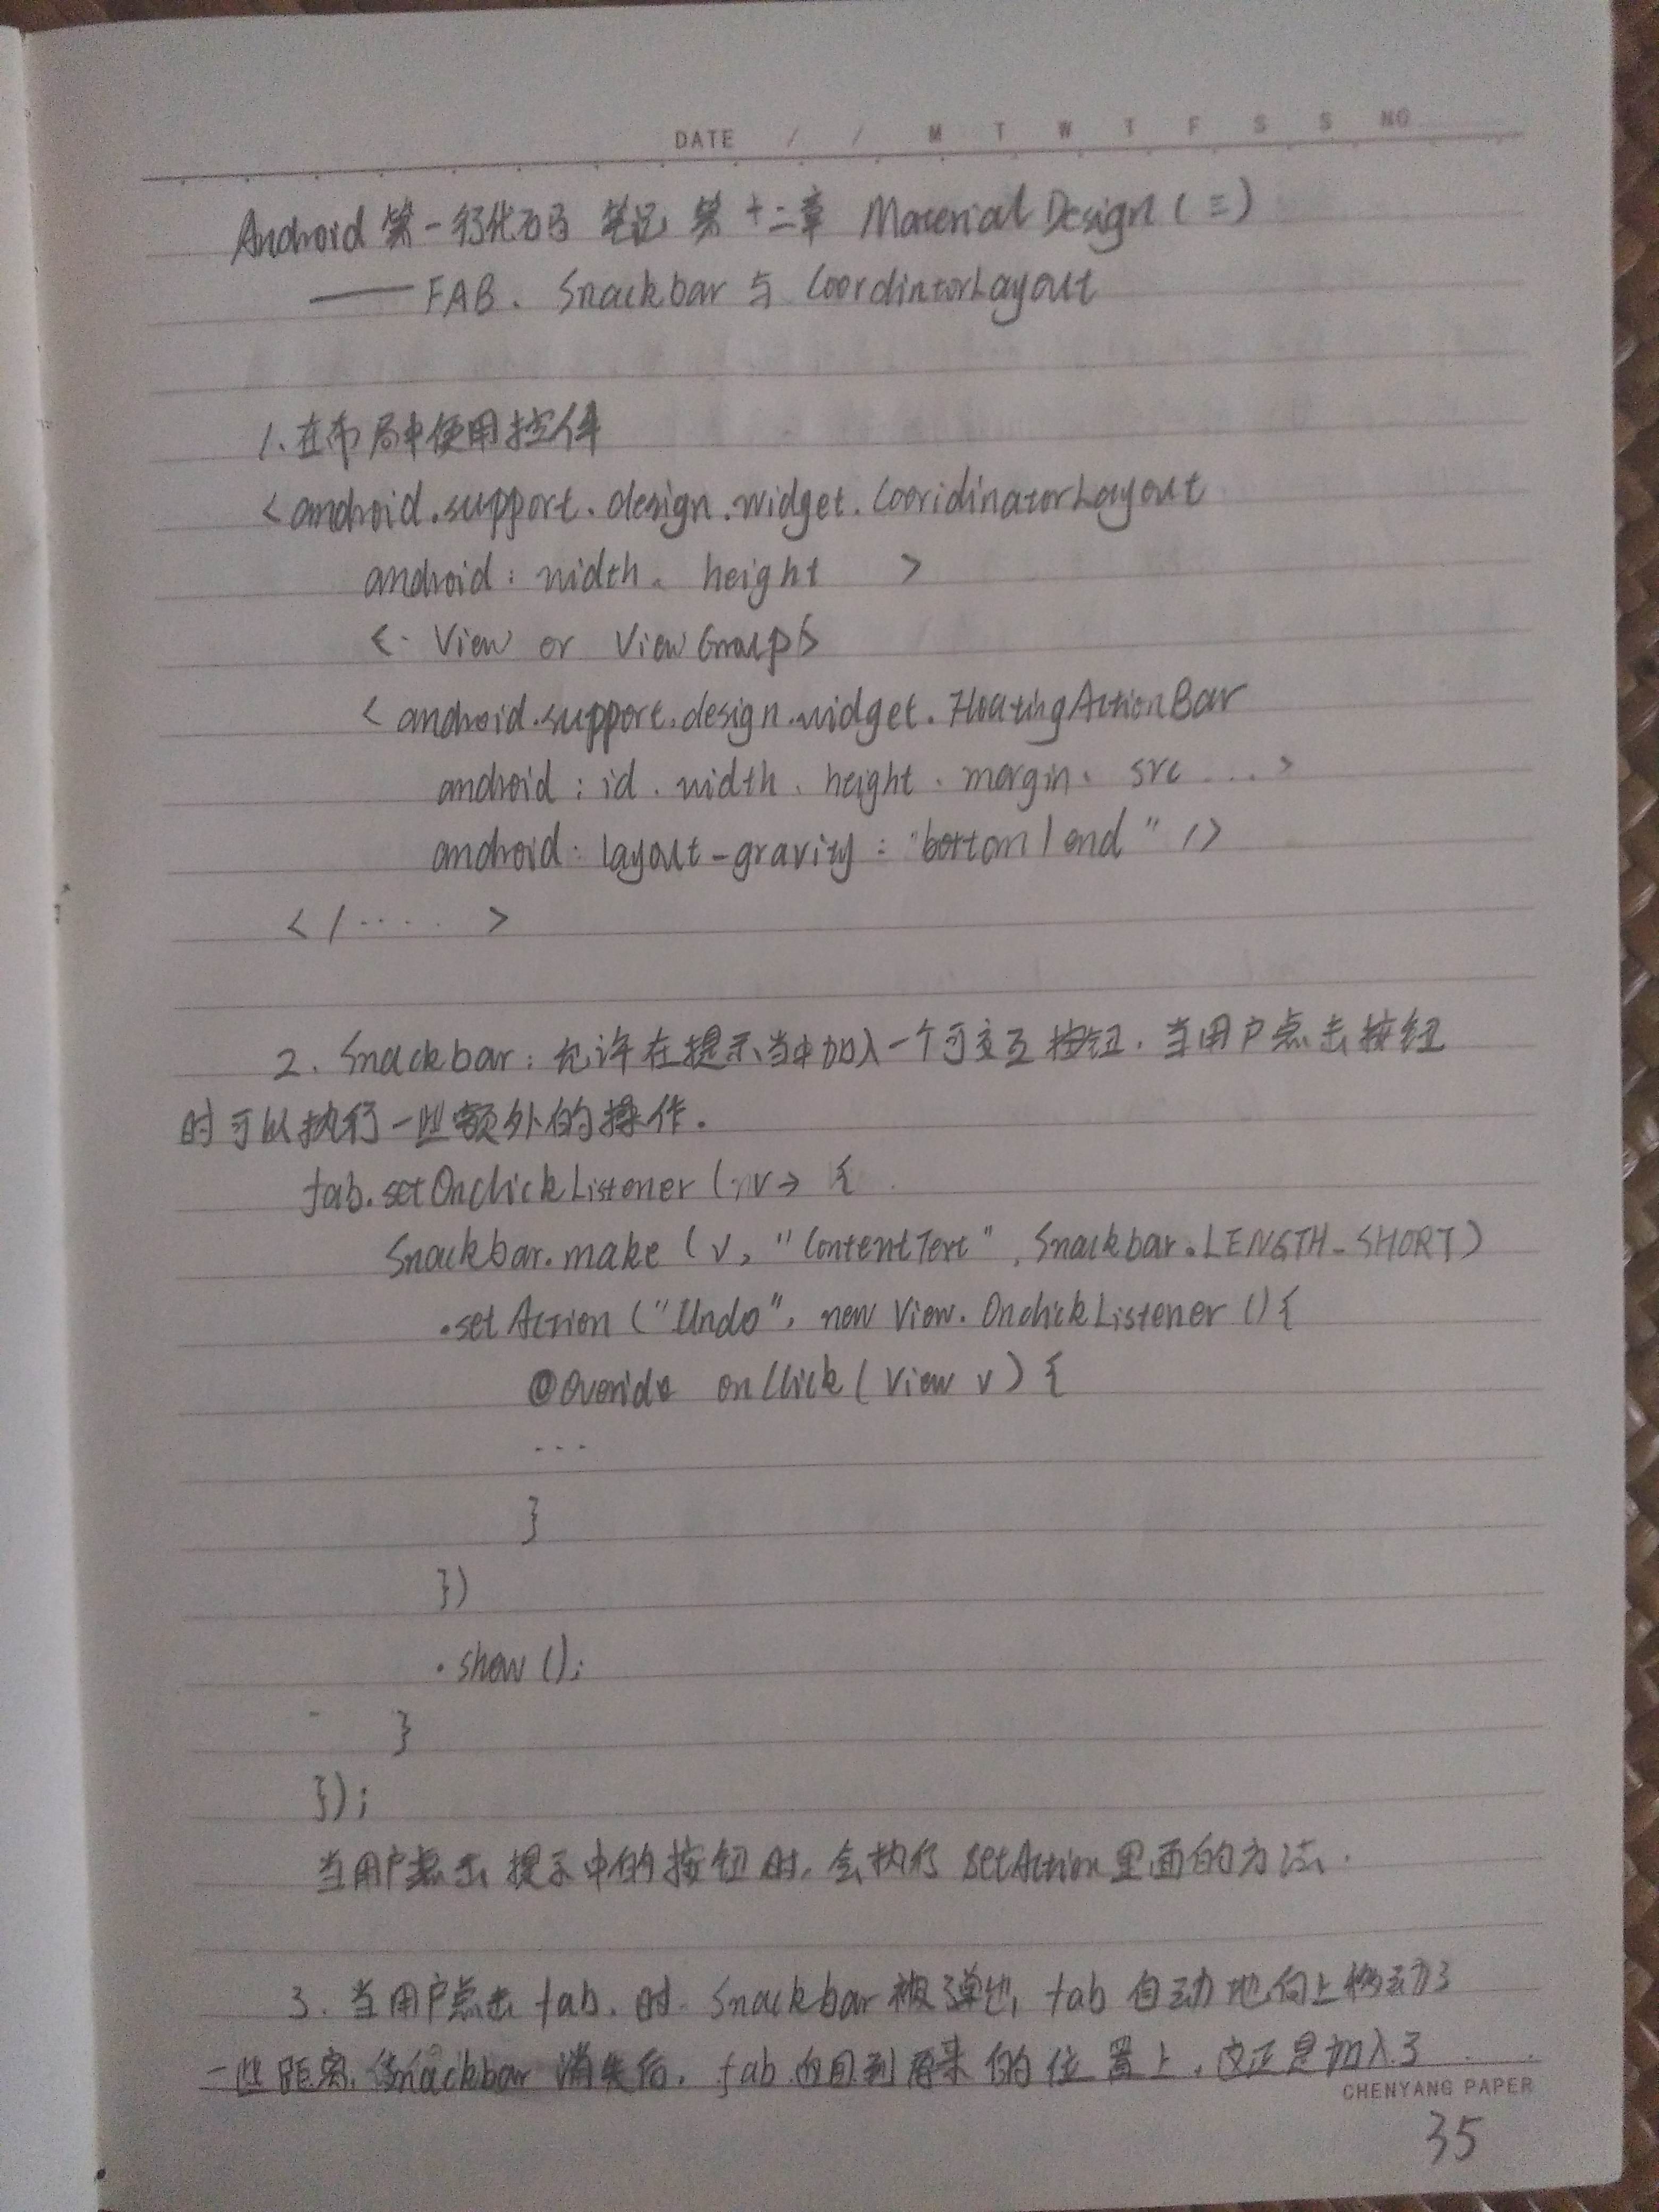 DATE / / M T W T F S S NO
Android 第一行代码 笔记 第十二章 Material Design (三)
—— FAB、Snackbar 与 CoordintorLayout
1、在布局中使用控件
<android.support.design.widget.CooridinatorLayout
android: width、height >
<- View or ViewGroup/>
<android.support.design.widget.FloatingActionBar
android: id、width、height、margin、src ... >
android: layout-gravity: "bottom | end" />
</..... >
2、Snackbar: 允许在提示当中加入一个可交互按钮，当用户点击按钮
时可以执行一些额外的操作.
fab.setOnclickListener (v-> {
Snackbar.make (v, "ContentText", Snackbar.LENGTH_SHORT)
.setAction ("Undo", new View.OnclickListener () {
@Override onClick (View v) {
...
}
})
.show ();
}
});
当用户点击提示中的按钮时，会执行 setAction 里面的方法.
3、当用户点击 fab、时 Snackbar 被弹出，fab 自动地向上移动了
一些距离，Snackbar 消失后，fab 回到原来的位置上，这正是加入了
CHENYANG PAPER
35